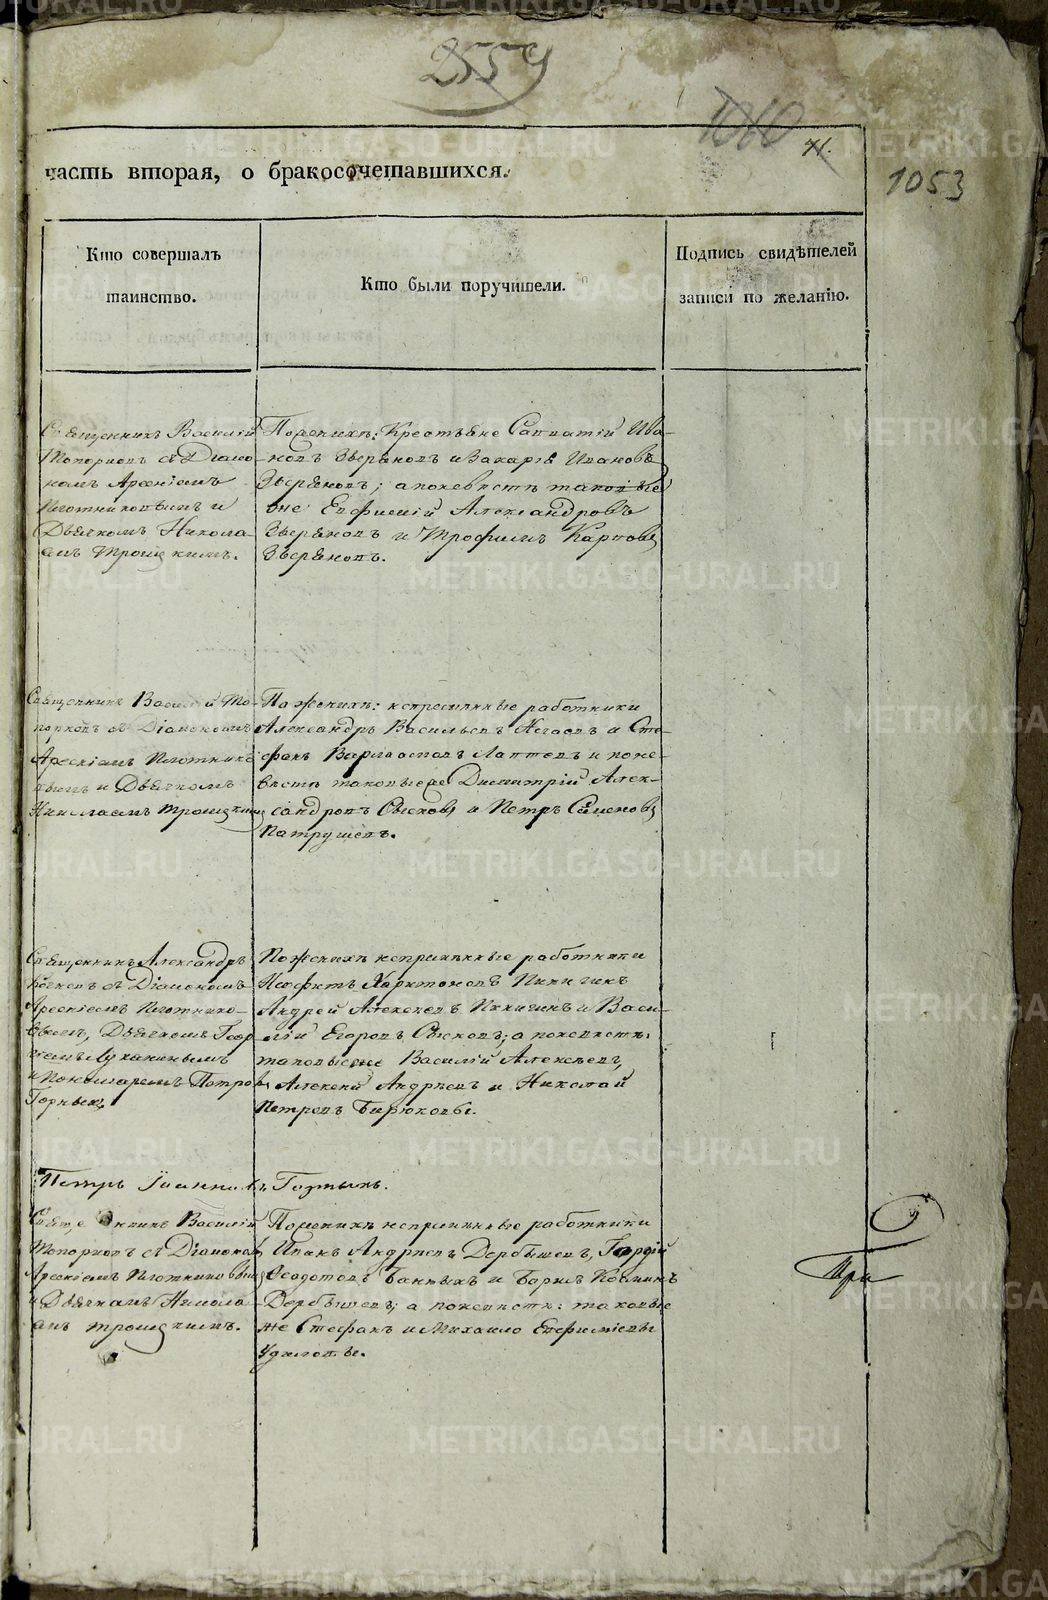 2559
1060
71.
1053
часть вторая, о бракосочетавшихся.
Кто совершалъ
таинство.
Кто были поручители.
Подпись свидѣтелей
записи по желанію.
Священникъ Василій
Топорковъ съ Діако-
номъ Арсеніемъ
Плотниковымъ и
Дьячкомъ Никола-
емъ Троицкимъ.
По женихѣ: Крестьяне Савватій Ива-
новъ Звѣревъ и Захарія Ивановъ
; а по невѣстѣ таковые
же Евфимій Александровъ
и Трофимъ Карповъ
Священникъ Василій То-
порковъ съ Діакономъ
Арсеніемъ Плотнико-
вымъ и Дьячкомъ
Николаемъ Троицкимъ
По женихѣ: непремѣнные работники
Александръ Васильевъ и Сте-
фанъ Варлаамовъ Лаптевъ и по не-
вѣстѣ таковые же Димитрій Алек-
сандровъ Сысковъ и Петръ Семеновъ
Патрушевъ.
Священникъ Александръ
съ Діакономъ
Арсеніемъ Плотнико-
вымъ, Дьячкомъ Геор-
гіемъ Луканинымъ
и Пономаремъ Петромъ
Горныхъ
По женихѣ непремѣнные работники
Неофитъ Харитоновъ Пинигинъ
Андрей Алексеевъ Пинигинъ и Васи-
лій Егоровъ Сысковъ; а по невѣстѣ:
таковые же Василій Алексѣевъ,
Алексѣй Андреевъ и Николай
Петровъ Бирюковы.
Петръ Іоанновъ Горныхъ.
Священникъ Василій
Топорковъ съ Діакономъ
Арсеніемъ Плотниковымъ
и Дьячкомъ Никола-
емъ Троицкимъ.
По женихѣ непремѣнные работники
Иванъ Андреевъ Дербышевъ, Гордѣй
Ѳедотовъ Банныхъ и Борисъ Козминъ
Дербышевъ; а по невѣстѣ: таковые
же Стефанъ и Михайло Евфиміевы
Удиловы.
При
METRIKI.GASO-URAL.RU